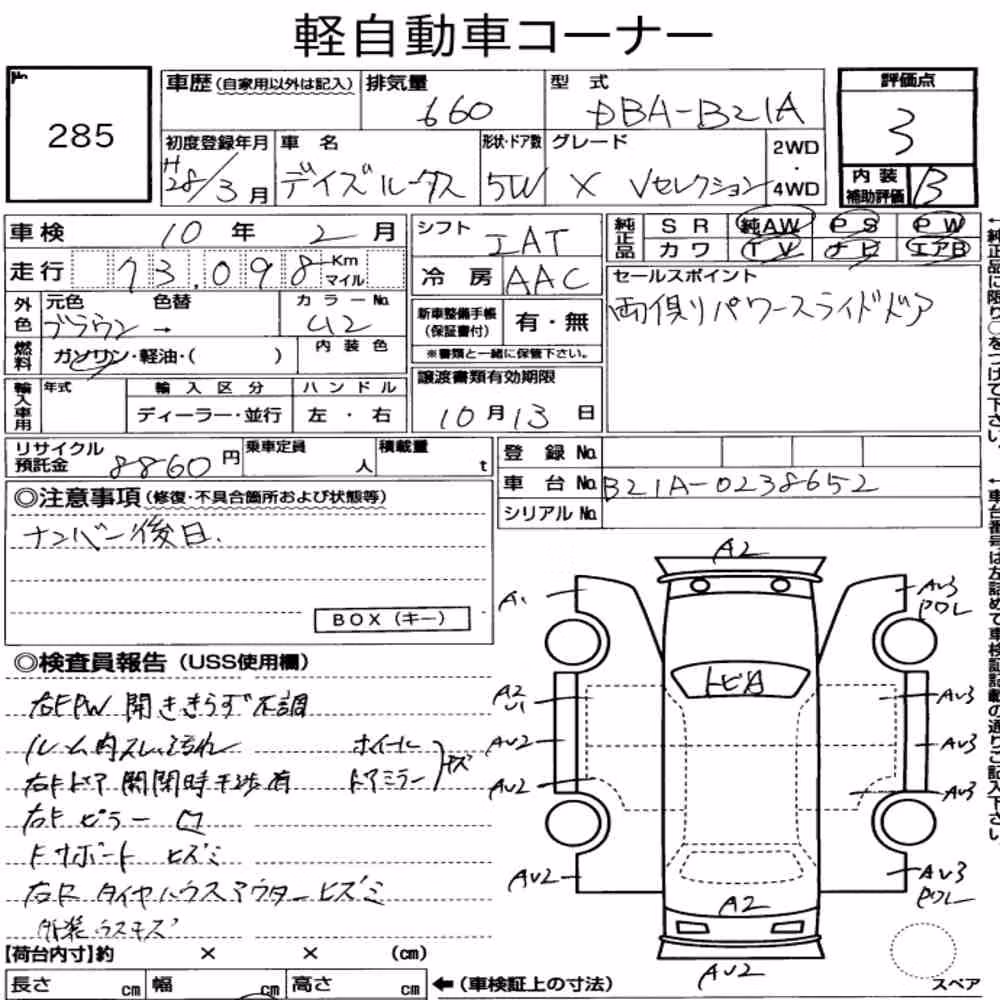 軽自動車コーナー
No.
285
車歴(自家用以外は記入)
排気量
660
型式
DBA-B21A
評価点
3
初度登録年月
H28/3月
車名
デイズルークス
形状・ドア数
5W
グレード
X Vセレクション
2WD
・
4WD
内装
補助評価
B
車検 10年 2月
シフト
IAT
純正品
SR 純AW PS PW
カワ TV ナビ エアB
走行 73.098 Km
マイル
冷房 AAC
セールスポイント
両側リパワースライドドア
外色
元色
ブラウン→
色替
カラーNo.
U12
新車整備手帳
(保証書付)
有・無
※書類と一緒に保管下さい。
燃料
ガソリン・軽油・( )
内装色
譲渡書類有効期限
10月13日
輸入車用
年式
輸入区分
ディーラー・並行
ハンドル
左・右
リサイクル
預託金 8860円
乗車定員
人
積載量
t
登録No.
車台No. B21A-0238652
シリアルNo.
◎注意事項(修復・不具合箇所および状態等)
ナンバー後日.
BOX(キー)
◎検査員報告(USS使用欄)
右FPW 開ききらず不調
ルーム内スレ、汚れ
右Fドア開閉時干渉有
ホイール
ドアミラー
キズ
右Fピラー
Fサポート ヒズミ
右Rタイヤハウスアウターヒズミ
外装ウスキズ
【荷台内寸】約 × × (cm)
長さ cm 幅 cm 高さ cm
←(車検証上の寸法)
A2
A1
AU3
POL
トビA
A2
U1
AU3
AU2
AU3
AU2
AU3
AU2
AU3
POL
A2
AU2
スペア
←純正品に限り○をつけて下さい。
←車台番号は左詰めで車検証記載の通りご記入下さい。